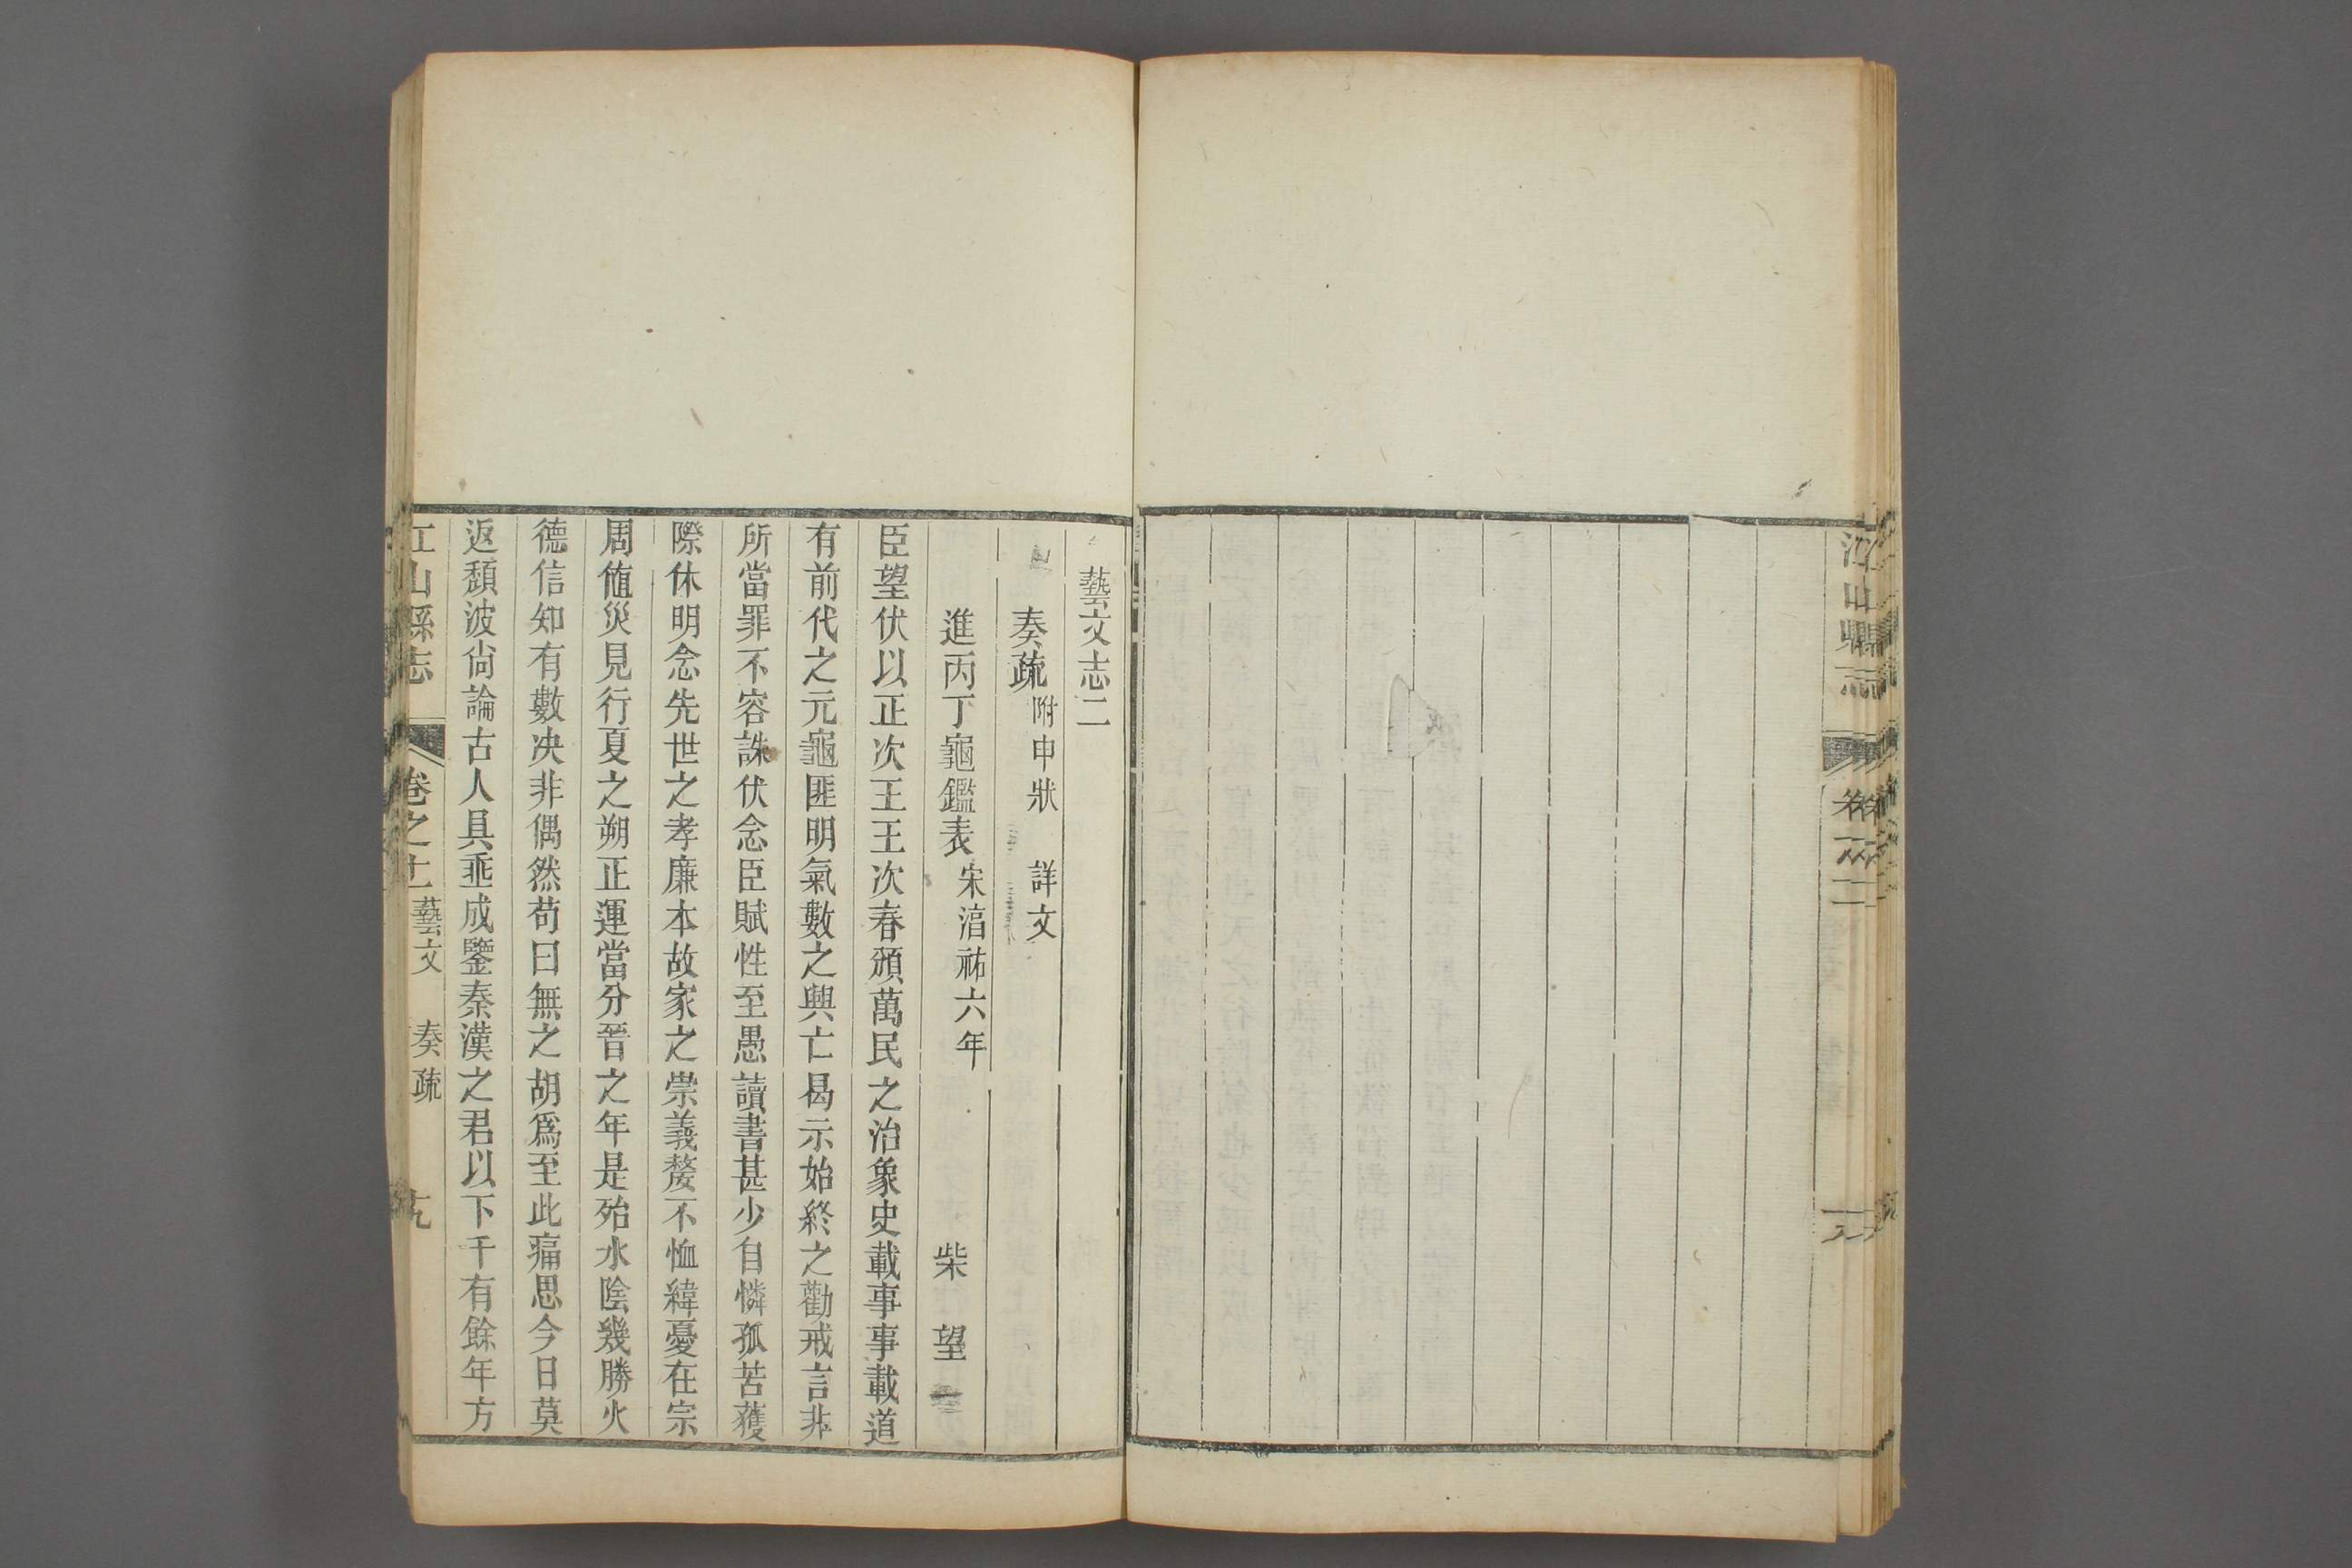 藝文志二
奏疏 附申狀 詳文
進丙丁龜鑑表 宋湻祐六年 柴望
臣望伏以正次王王次春頒萬民之治象史載事事載道
有前代之元龜匪明氣數之興亡曷示始終之勸戒言非
所當罪不容誅伏念臣賦性至愚讀書甚少自憐孤苦獲
際休明念先世之孝廉本故家之崇義嫠不恤緯憂在宗
周値災見行夏之朔正運當分晉之年是殆水陰幾勝火
德信知有數决非偶然苟曰無之胡爲至此痛思今日莫
返頽波尙論古人具乖成鑒秦漢之君以下千有餘年方
江山縣志 卷之十一 藝文 奏疏 十九